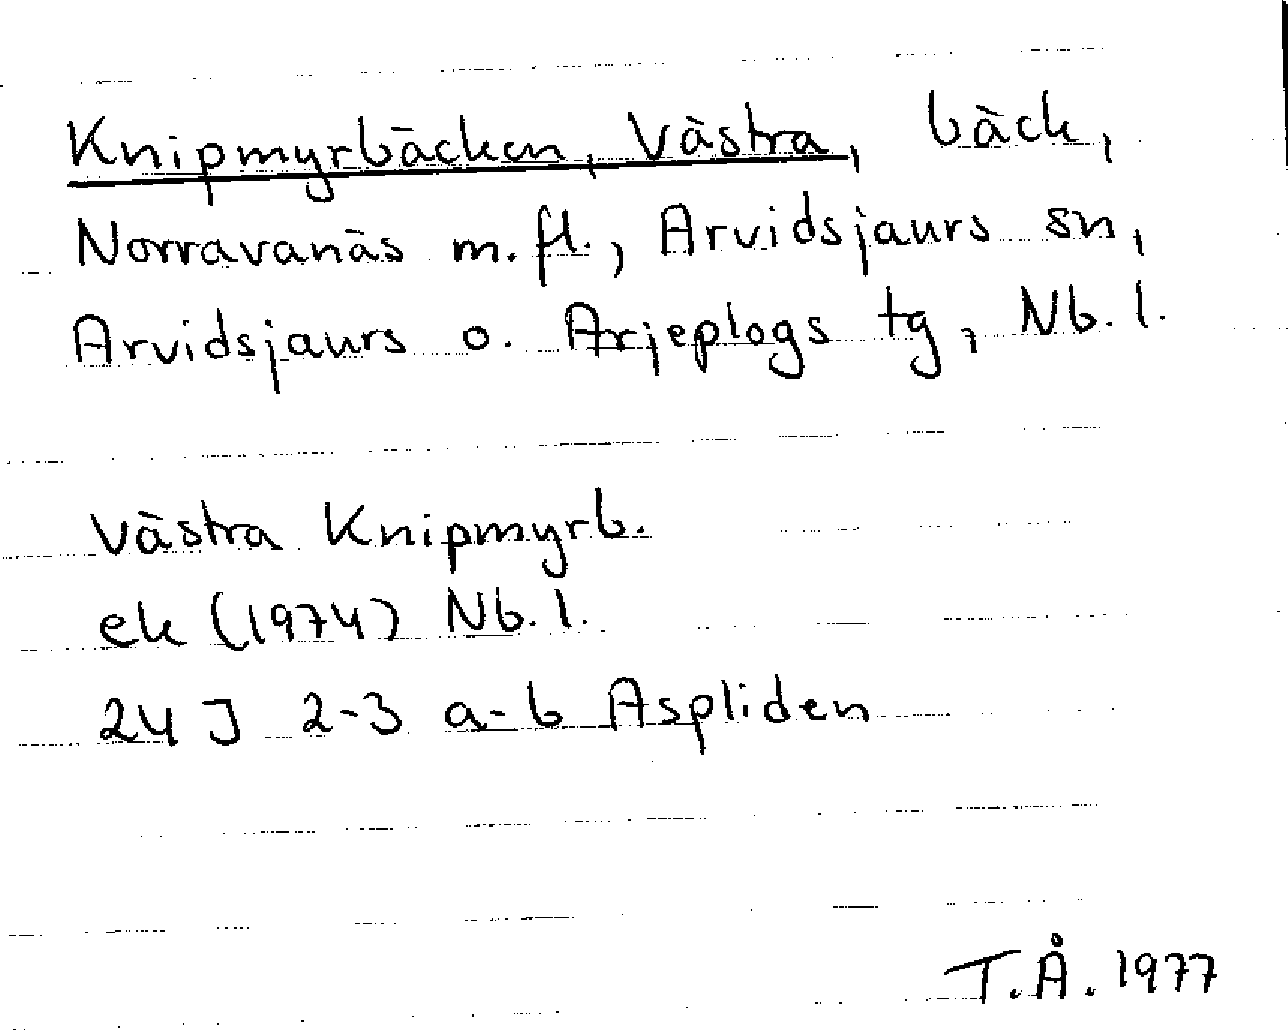 Knipmyrbäcken, Västra, bäck,
Norravanäs m.fl., Arvidsjaurs sn,
Arvidsjaurs o. Arjeplogs tg, Nb. l.
Västra Knipmyrb.
ek (1974) Nb. l.
24 J 2-3 a-b Aspliden
T.Å. 1977